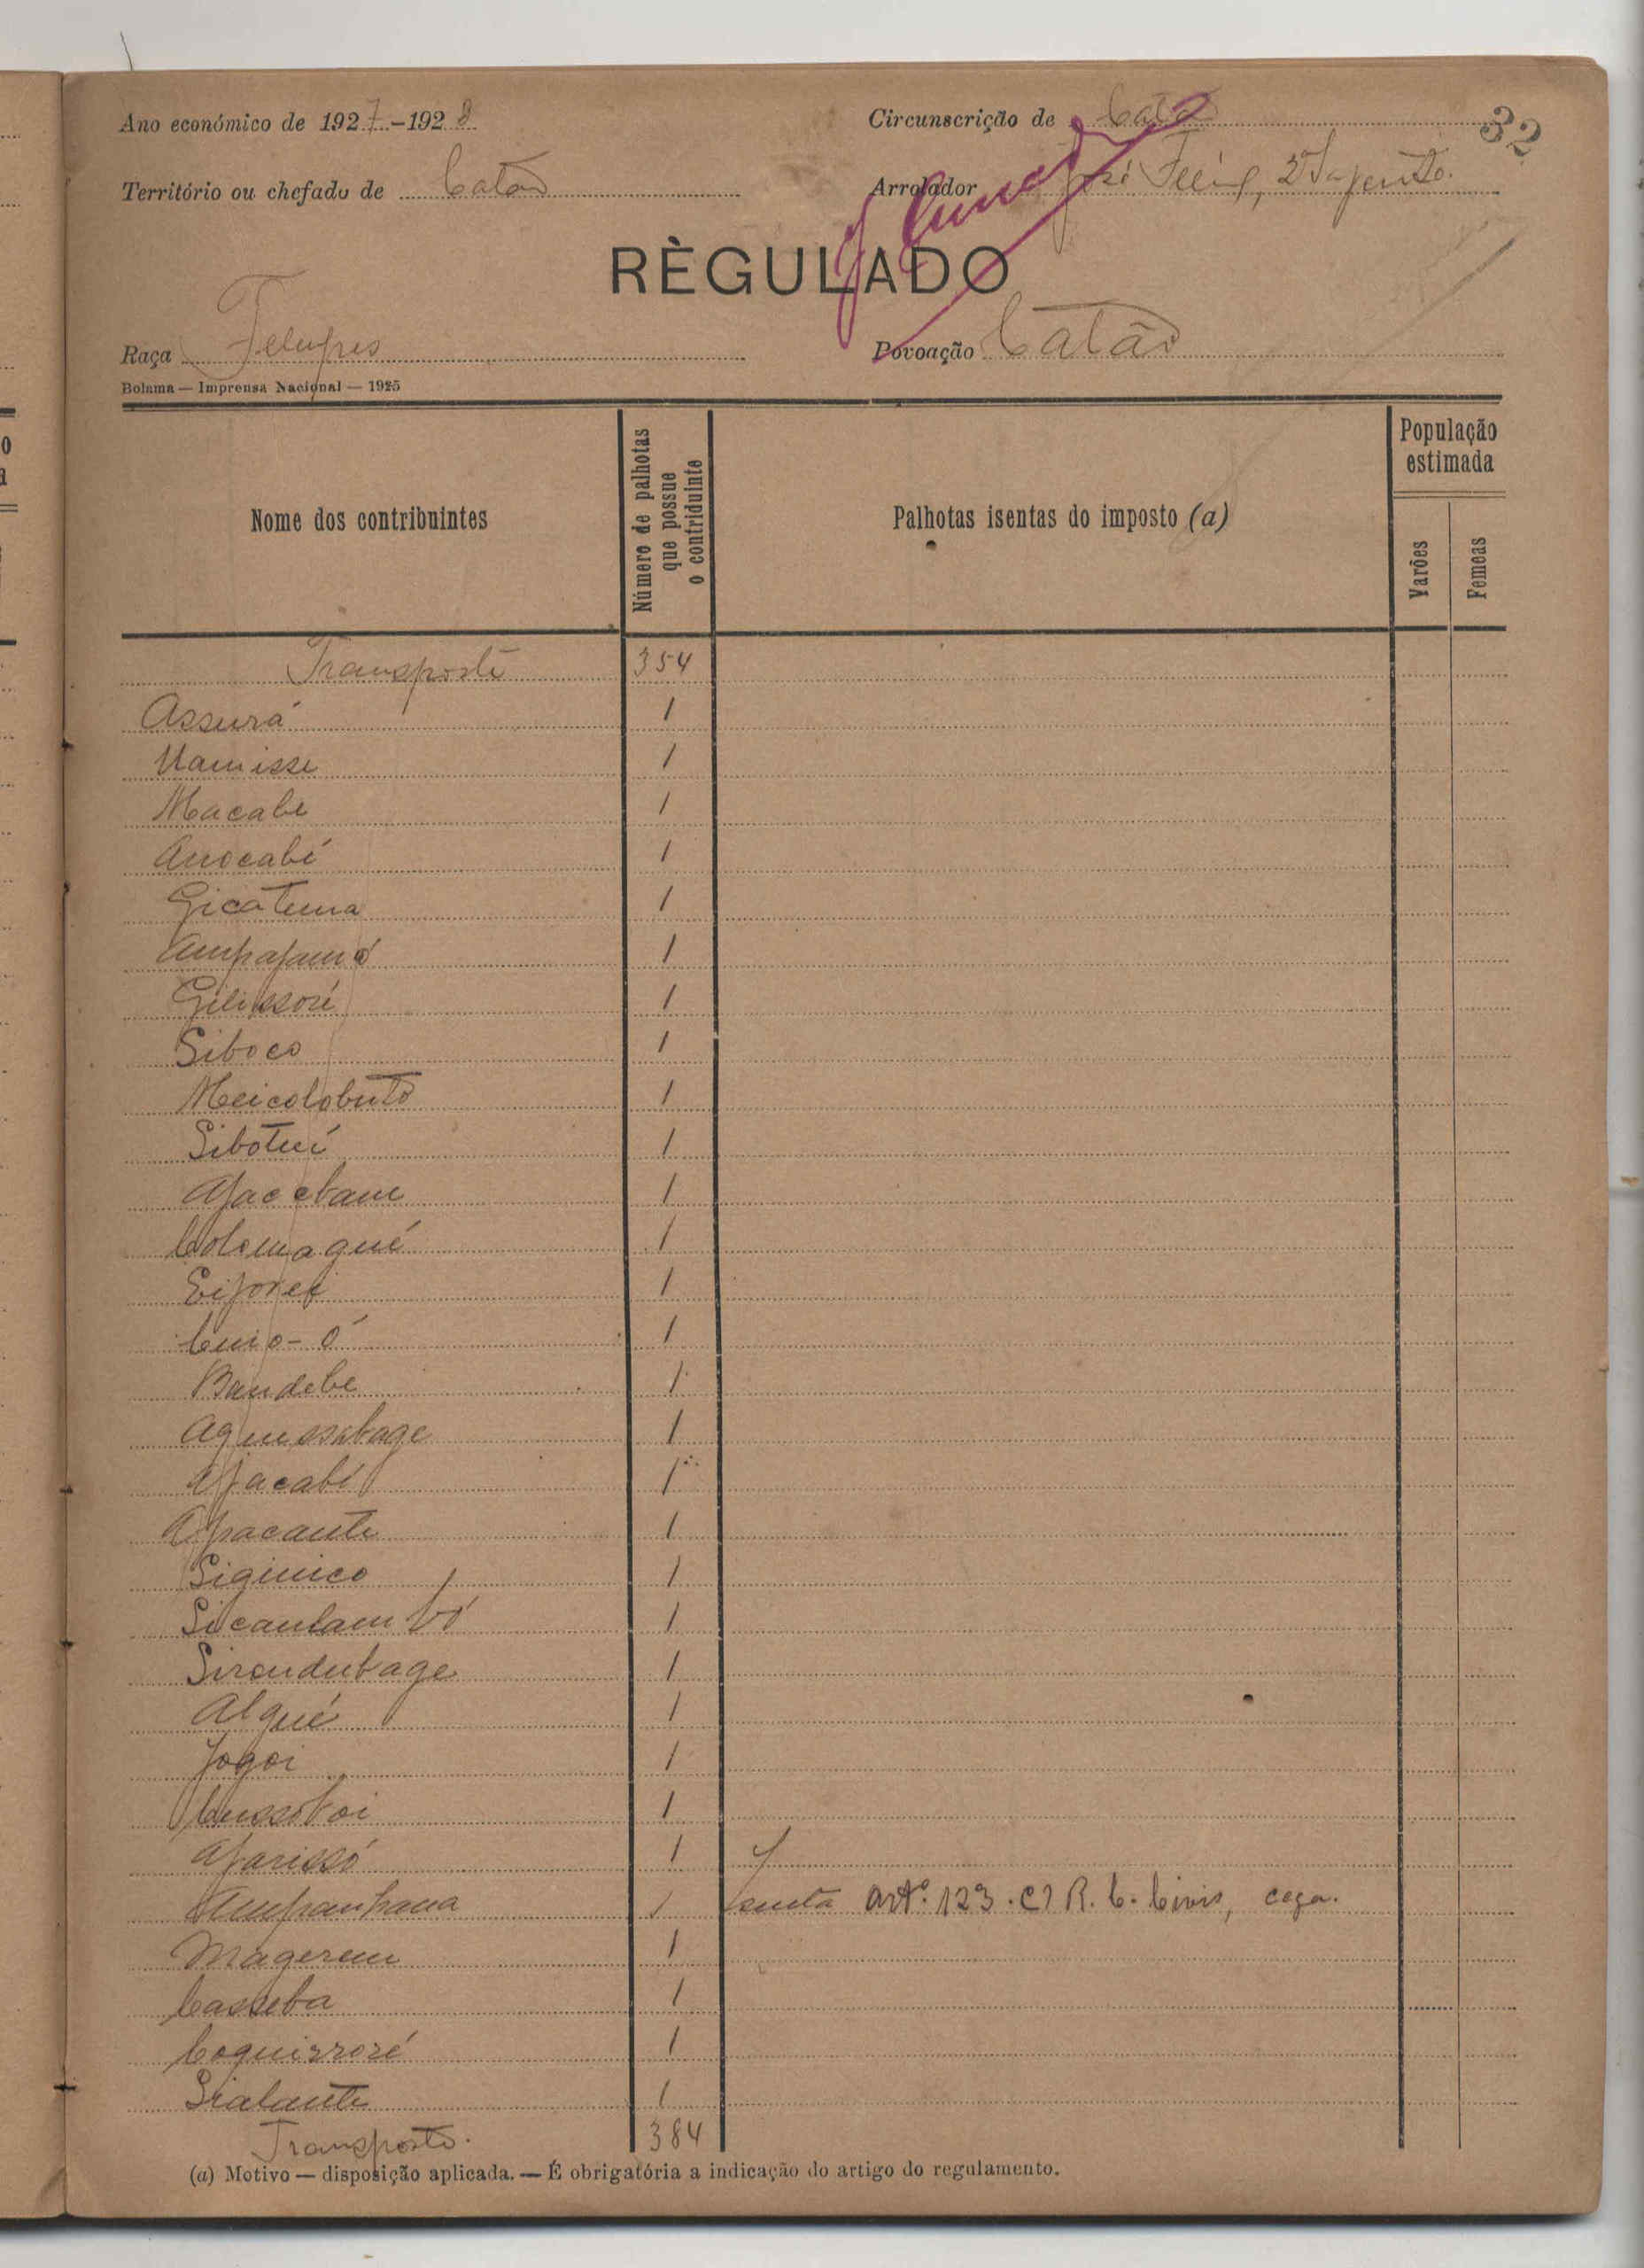 Ano económico de 1927-1928
Circunscrição de Catão
32
Território ou chefado de Catão
Arrolador José 2º Sargento.
RÈGULADO
Raça Felupes
Povoação Catão
Bolama — Imprensa Nacional — 1925
Nome dos contribuintes
Número de palhotas que possue o contriduinte
Palhotas isentas do imposto (a)
População estimada
Varões
Femeas
Transporte 354
Assurá 1
Uamisse 1
Macabe 1
Anocabé 1
Gicatema 1
Ampajamó 1
Gilissoré 1
Siboco 1
Meicolobuto 1
Sibotué 1
Ajacebam 1
Colemagué 1
1
Cuio-ó 1
Bandebe 1
1
Apacabé 1
Apacante 1
Siginico 1
1
Sirondubage 1
Alqué 1
Jogoi 1
Cussoboi 1
Afarissó 1
Ampanhana 1 Isenta artº. 123. C) R. C. Civis, cega.
Magerem 1
Casseba 1
Coquirroré 1
Sialante 1
Transporte. 384
(a) Motivo — disposição aplicada. — É obrigatória a indicação do artigo do regulamento.